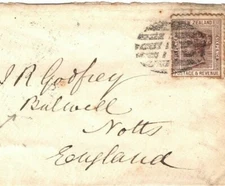 NEW ZEALAND
POSTAGE & REVENUE
J R Godfrey
Bulwell
Notts
England